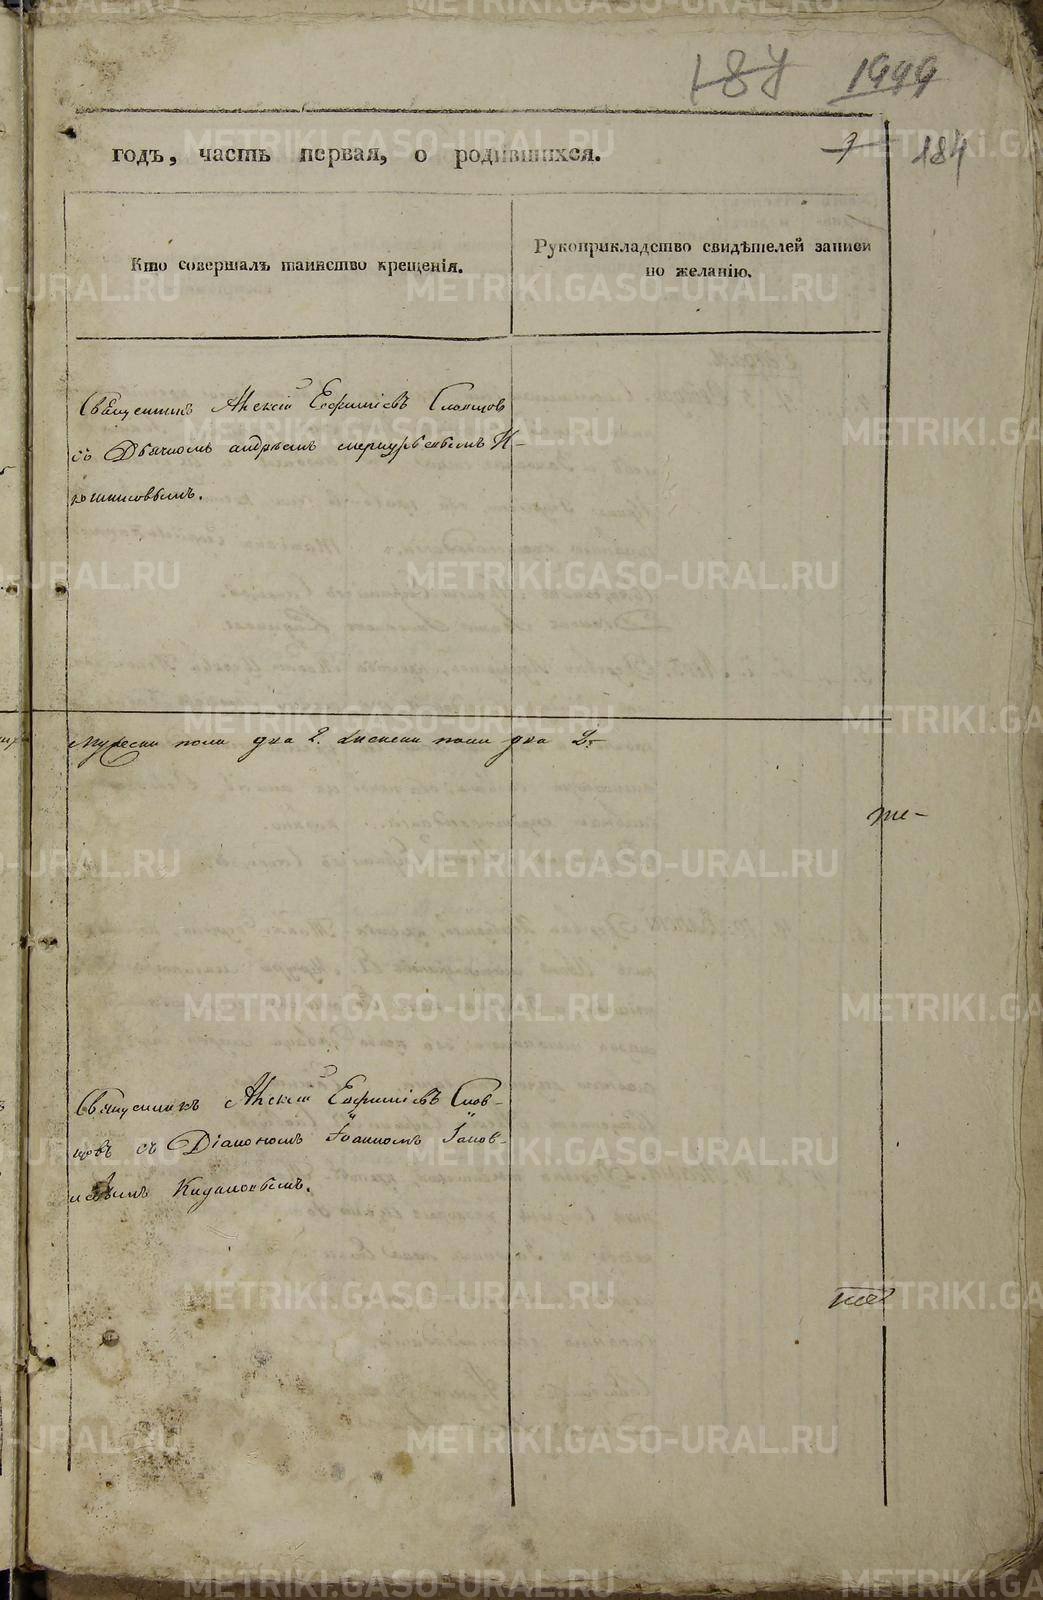 187 1949
годъ, часть первая, о родившихся.
7 184
Кто совершалъ таинство крещенія.
Рукоприкладство свидѣтелей записи
по желанію.
Священникъ Алексій Ефиміевъ Словцов
съ Дьячкомъ андреемъ меркурьевымъ К-
Мужеска пола два 2. женска пола два 2.
Священникъ Алексій Ефиміевъ Слов-
цовъ съ Діакономъ Іоанномъ Іаков-
левымъ Кидаловымъ.
METRIKI.GASO-URAL.RU